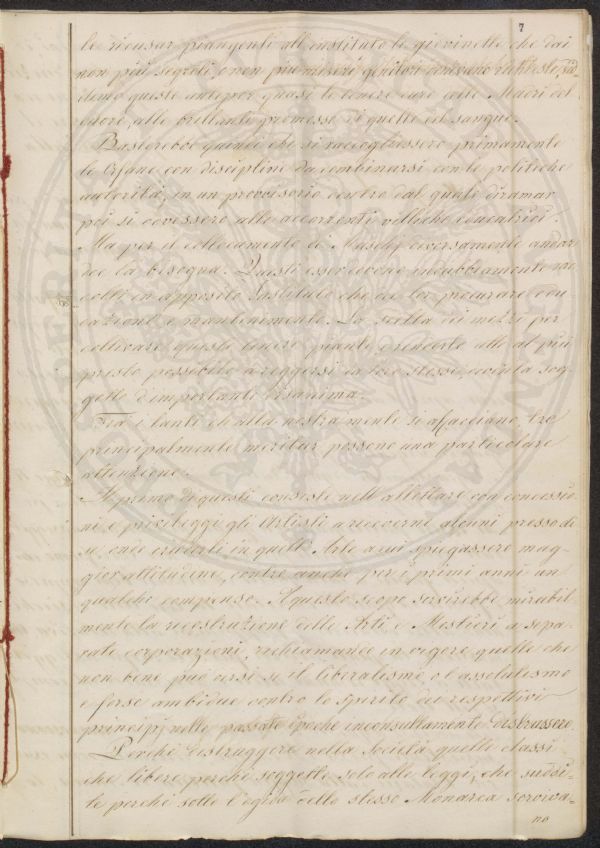 7
le ricusar piangenti all'instituto le giovinette che dai
non più segreti, e non più miseri genitori venivano richieste,
queste antepor quasi le tenere cure delle Madri del
cuore, alle brillanti promesse di quelle del sangue.
Basterebbe quindi che si raccogliessero primamente
le Orfane con discipline da combinarsi con le politiche
autorità, in un provvisorio centro dal quale diramar
poi si dovessero alle accorrenti villiche
Ma per il collocamento di Maschj diversamente
la bisogna. Questi esser devono indubbiamente rac
colti in apposito Instituto che dee lor procurare edu
cazione e mantenimento. La scelta dei mezzi per
coltivare queste tenere piante, e renderle atte al più
presto possibile a reggersi da loro stesse, diventa sog
getto d'importante disamina.
Tra i tanti che alla nostra mente si affacciano, tre
principalmente meritar possono una particolare
attenzione.
Il primo di questi consiste nell'allettare con concessio
ni, e privileggi gli Artisti a riceverne alcuni presso di
se, onde erudirli in quell'Arte a cui spiegassero mag-
gior attitudine, contro anche per i primi anni un
qualche compenso. A questo scopo servirebbe mirabil
mente la ricostruzione delle Arti e Mestieri a sepa
rate corporazioni, richiamando in vigore quelle che
non bene può dirsi se il liberalismo, o l'assolutismo
e forse ambidue contro lo spirito dei respettivi
principj nelle passate epoche inconsultamente distrussero.
Perché distruggere nella Società quelle classi
che libere perché soggette solo alle leggi, che suddi-
te perché sotto l'egida dello stesso Monarca serviva-
no